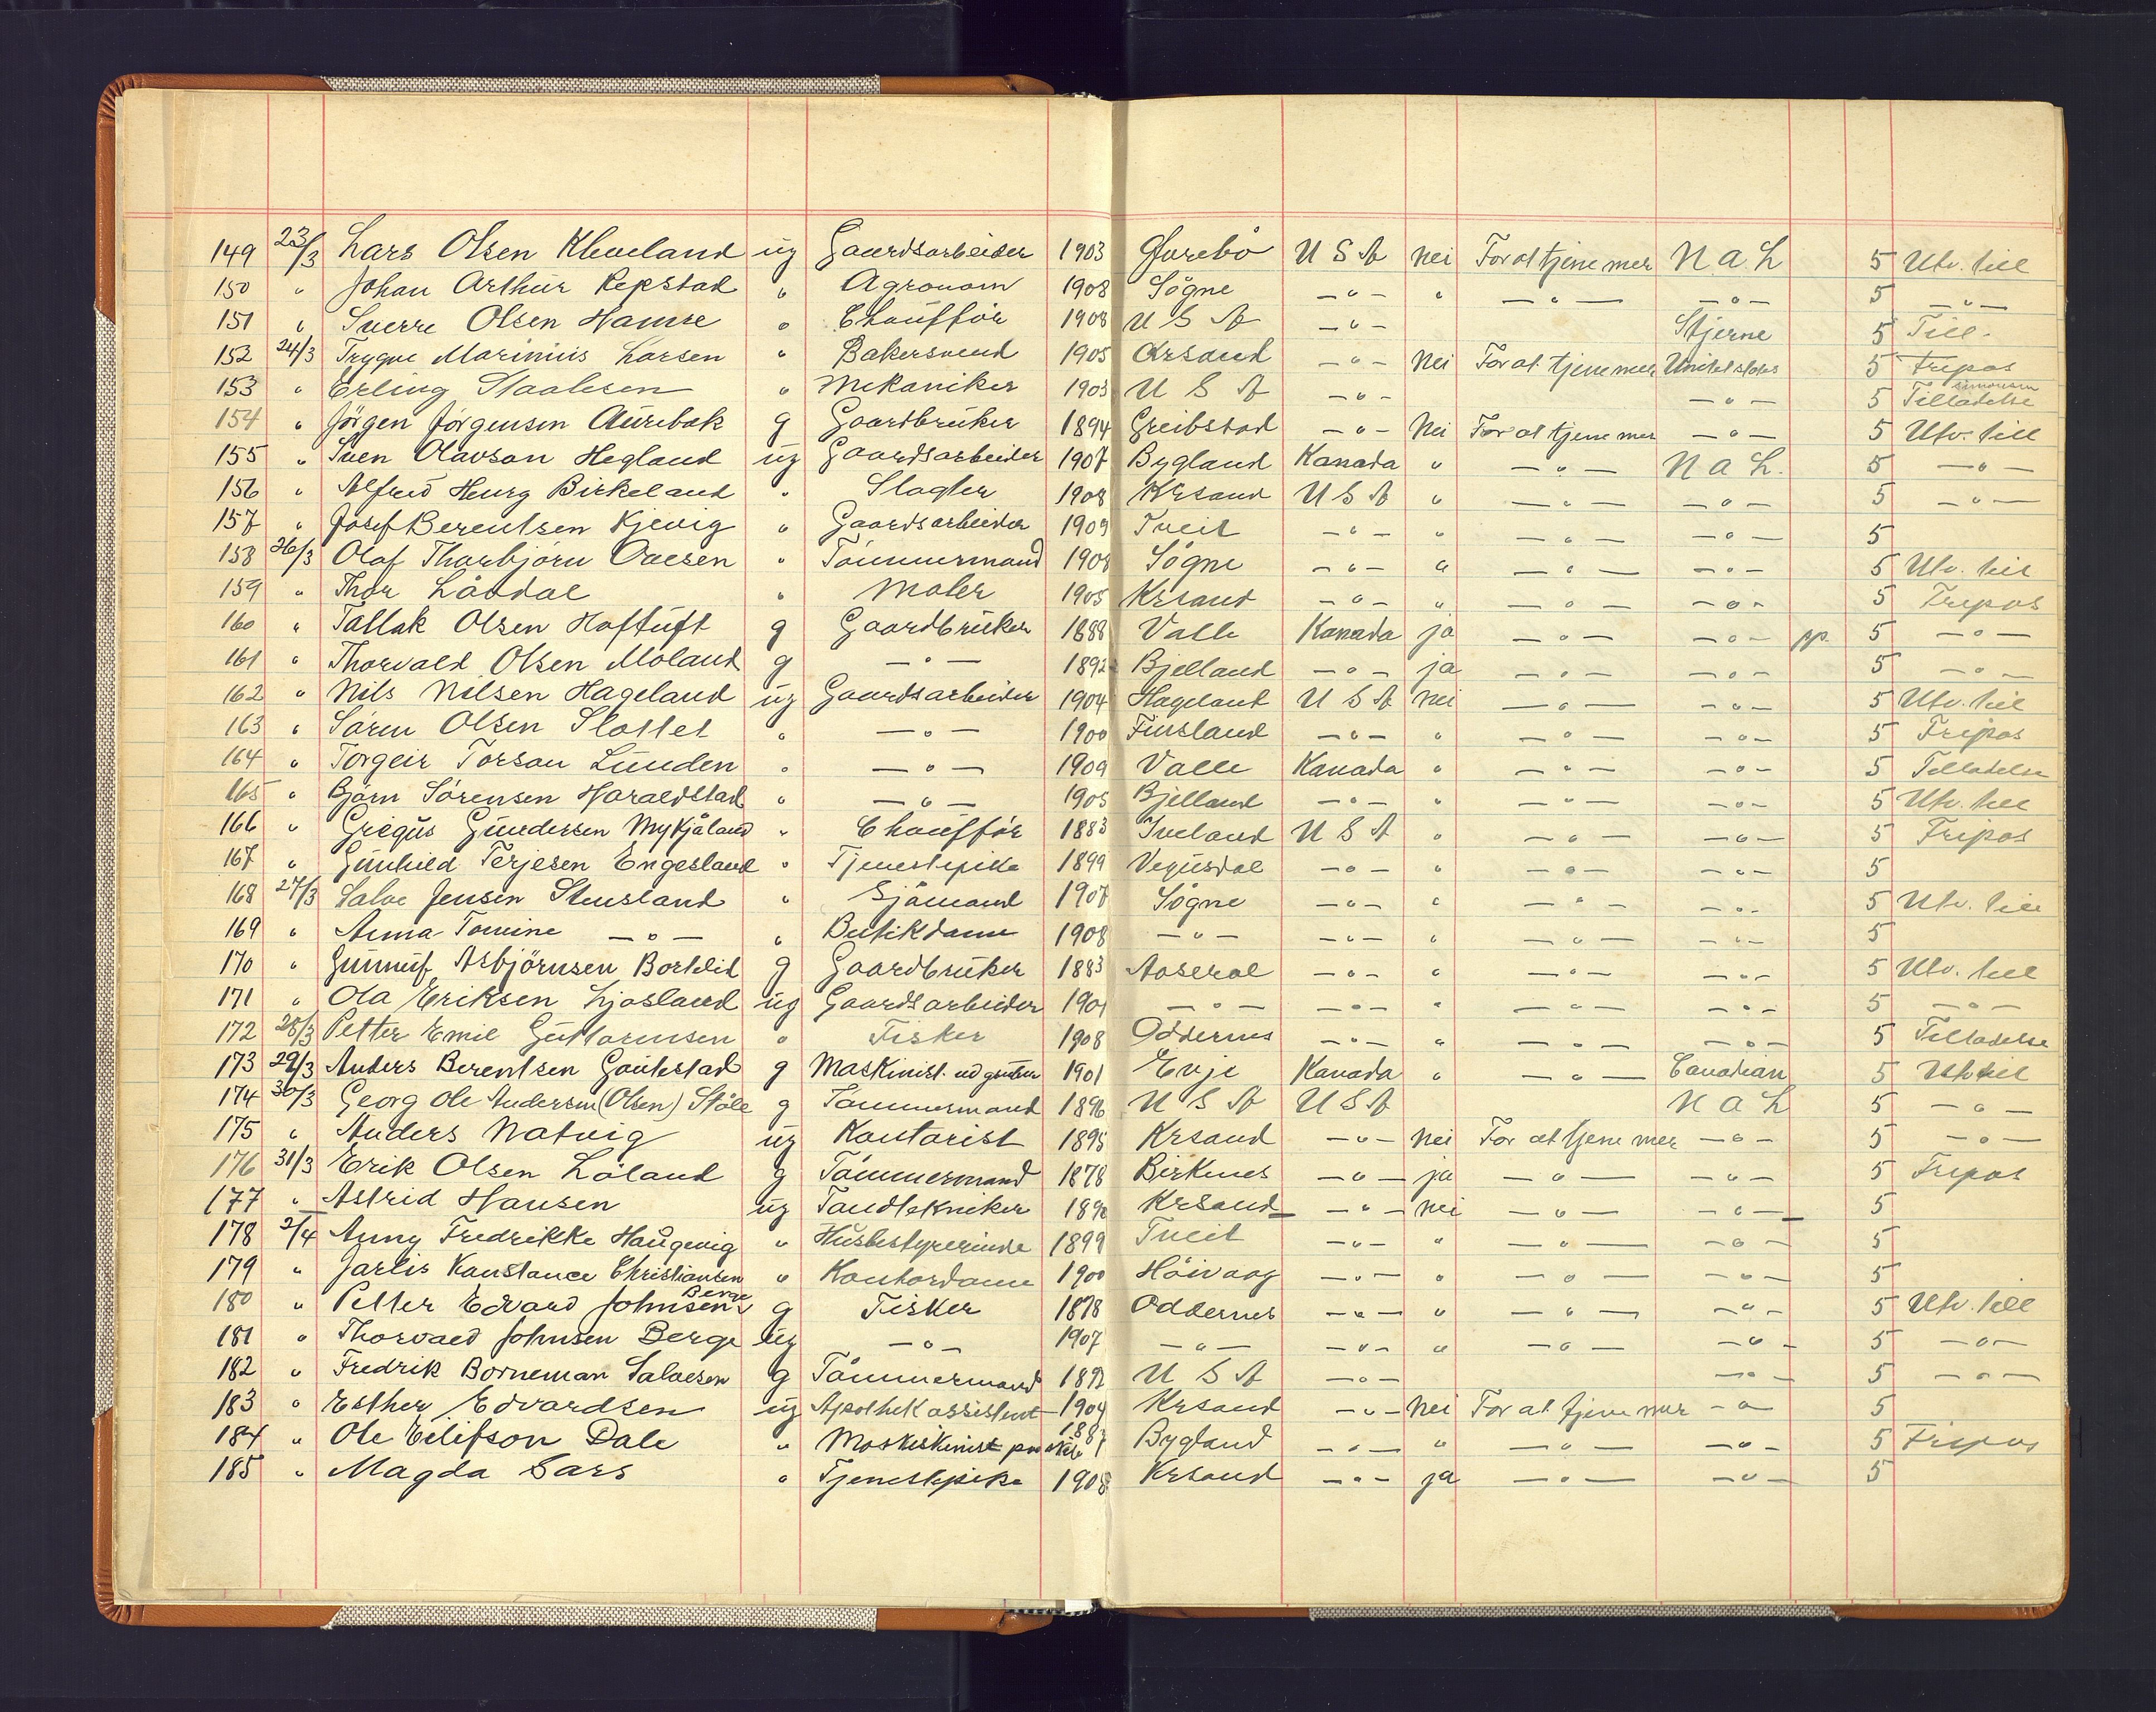 149 23/3 Lars Olsen Kleveland ug Gaardsarbeider 1903 Grebø U S A nei For at tjene mer N A L 5 Utv. till
150 " Johan Arthur Repstad " Agronom 1908 Søgne -"- " -"- -"- 5 -"-
151 " Sverre Olsen Hamre " Chauffør 1908 U S A -"- Stjerne 5 Till.
152 24/3 Trygve Marinius Larsen " Bakersvend 1905 Krsand -"- Nei For at tjene mer United states 5 Fripas
153 " Erling Staalesen " Mekaniker 1903 U S A -"- -"- 5 Tilladelse
154 " Jørgen Jørgensen Aurebak g Gaardbruker 1894 Greibstad -"- Nei For at tjene mer -"- 5 Utv. till
155 " Sven Olavson Hegland ug Gaardsarbeider 1907 Bygland Kanada " -"- N A L. 5 -"-
156 " Alfred Henry Birkeland " Slagter 1908 Krsand U S A " -"- -"- 5 -"-
157 " Josef Berentsen Kjevig " Gaardsarbeider 1909 Tveit -"- " -"- -"- 5
158 26/3 Olaf Thorbjørn Aaesen " Tømmermand 1908 Søgne -"- " -"- -"- 5 Utv. till
159 " Thor Låvdal " Maler 1905 Krsand -"- " -"- -"- 5 Fripas
160 " Tallak Olsen Hoftuft g Gaardbruker 1888 Valle Kanada ja -"- -"- pp. 5 -"-
161 " Thorvald Olsen Moland g -"- 1892 Bjelland -"- ja -"- -"- 5 -"-
162 " Nils Nilsen Hageland ug Gaardsarbeider 1904 Hageland U S A nei -"- -"- 5 Utv. till
163 " Søren Olsen Slottet " -"- 1900 Finsland -"- " -"- -"- 5 Fripas
164 " Torgeir Torson Lunden " -"- 1909 Valle Kanada " -"- -"- 5 Tilladelse
165 " Bjørn Sørensen Haraldstad " -"- 1905 Bjelland -"- " -"- -"- 5 Utv. till
166 " Gregus Gundersen Mykjåland " Chauffør 1883 Iveland U S A " -"- -"- 5 Fripas
167 " Gunhild Terjesen Engesland " Tjenestepike 1899 Vegusdal -"- " -"- -"- 5
168 27/3 Salve Jensen Stensland " Sjømand 1907 Søgne -"- " -"- -"- 5 Utv. till
169 " Anna Tomine -"- " Butikdame 1908 -"- -"- " -"- -"- 5
170 " Gunnuf Asbjørnsen Bortelid g Gaardbruker 1883 Aaseral -"- " -"- -"- 5 Utv. till
171 " Ola Eriksen Ljosland ug Gaardsarbeider 1901 -"- -"- " -"- -"- 5 -"-
172 28/3 Petter Emil Guttormsen " Fisker 1908 Oddernes -"- " -"- -"- 5 Tilladelse
173 29/3 Anders Berentsen Gautestad g Maskinist ved gruben 1901 Evje Kanada " -"- Canadian 5 Utv till
174 30/3 Georg Ole Andersen (Olsen) Støle g Tømmermand 1896 U S A U S A N A L 5 -"-
175 " Anders Natvig ug Kontorist 1895 Krsand -"- Nei For at tjene mer -"- 5 -"-
176 31/3 Erik Olsen Løland g Tømmermand 1878 Birkenes -"- ja -"- -"- 5 Fripas
177 " Astrid Hansen ug Tandtekniker 1890 Krsand -"- nei -"- -"- 5
178 2/4 Anny Fredrikke Haugevig " Husbestyrerinde 1899 Tveit -"- " -"- -"- 5
179 " Jarlis Konstance Christiansen " Kontordame 1900 Høivaag -"- " -"- -"- 5
180 " Petter Edvard Johnsen Berge g Fisker 1878 Oddernes -"- " -"- -"- 5 Utv. till
181 " Thorvald Johnsen Berge ug -"- 1907 -"- -"- " -"- -"- 5 -"-
182 " Fredrik Borneman Salvesen g Tømmermand 1892 U S A -"- -"- 5 -"-
183 " Esther Edvardsen ug Apothekassistent 1904 Krsand -"- Nei For at tjene mer -"- 5
184 " Ole Eilifson Dale " 1883 Bygland -"- " -"- -"- 5 Fripas
185 " Magda Sars " Tjenestepike 1908 Krsand -"- ja -"- -"- 5